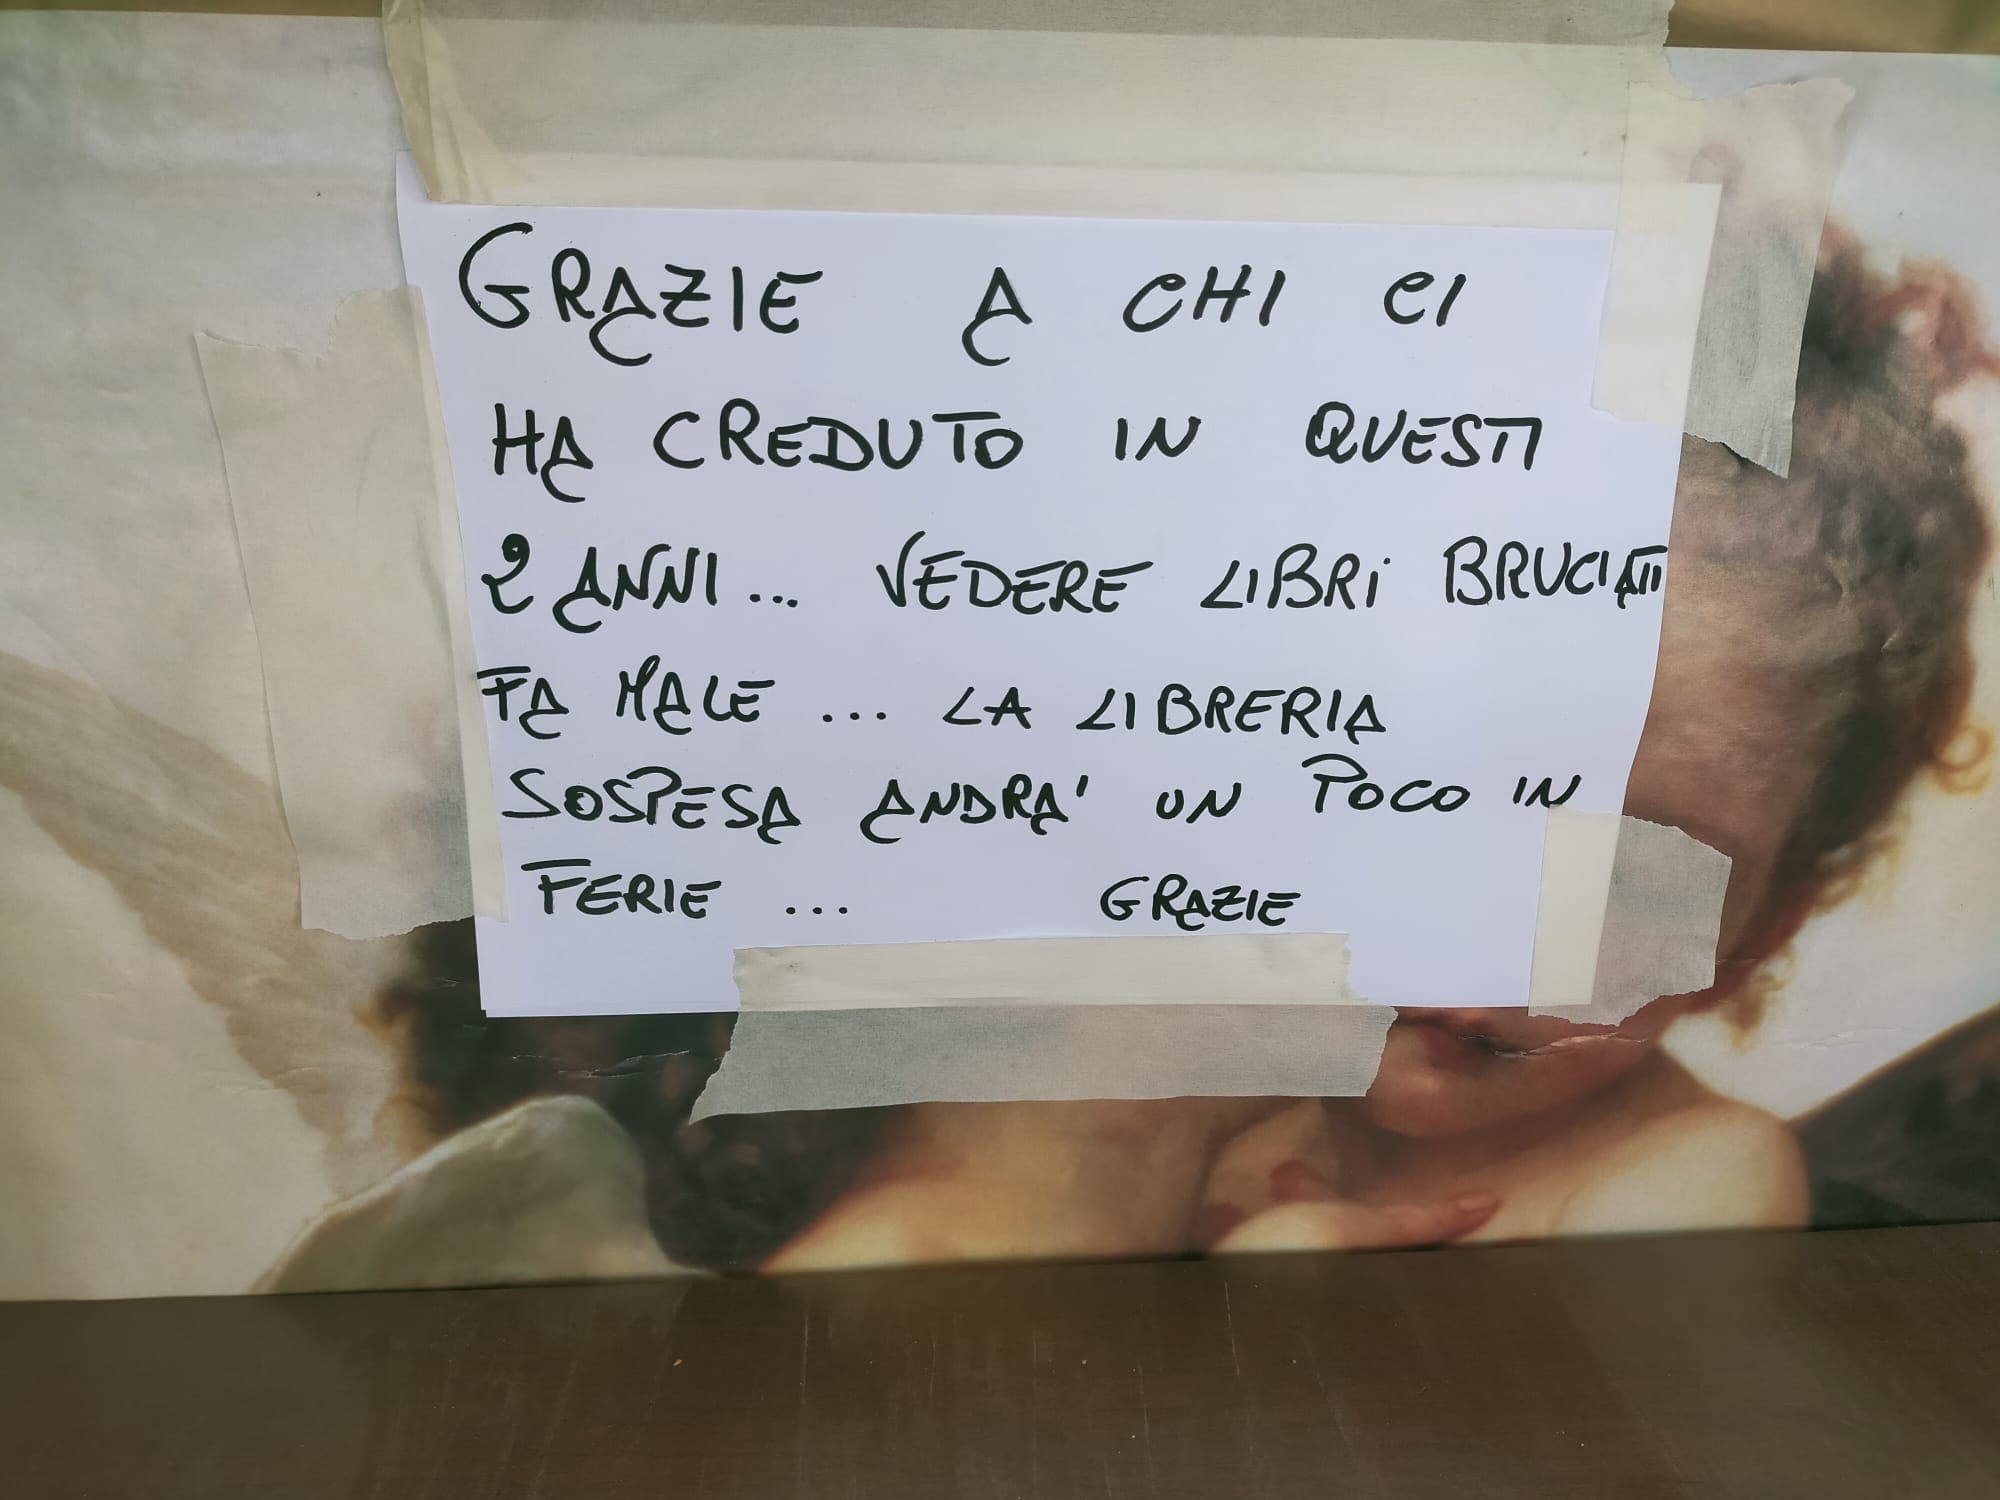 GRAZIE A CHI CI
HA CREDUTO IN QUESTI
2 ANNI... VEDERE LIBRI BRUCIATI
FA MALE ... LA LIBRERIA
SOSPESA ANDRA' UN POCO IN
FERIE ... GRAZIE